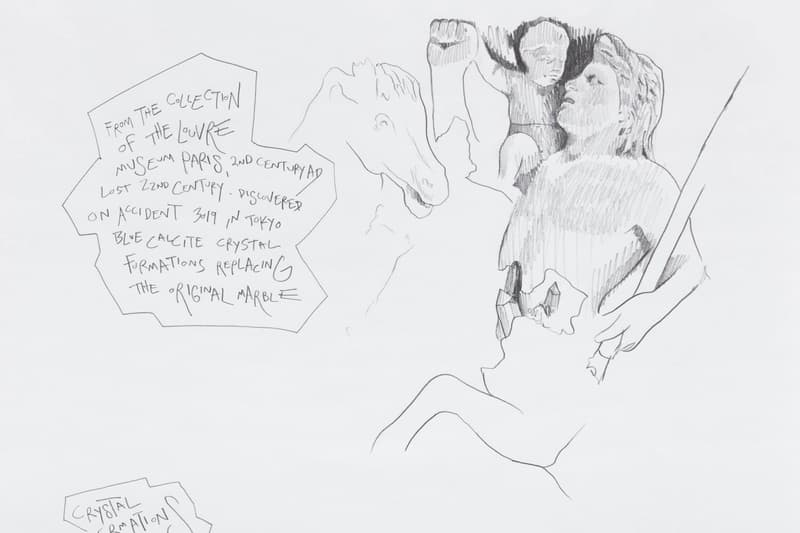 FROM THE COLLECTION
OF THE LOUVRE
MUSEUM PARIS, 2ND CENTURY AD
LOST 22ND CENTURY. DISCOVERED
ON ACCIDENT 3019 IN TOKYO
BLUE CALCITE CRYSTAL
FORMATIONS REPLACING
THE ORIGINAL MARBLE
CRYSTAL